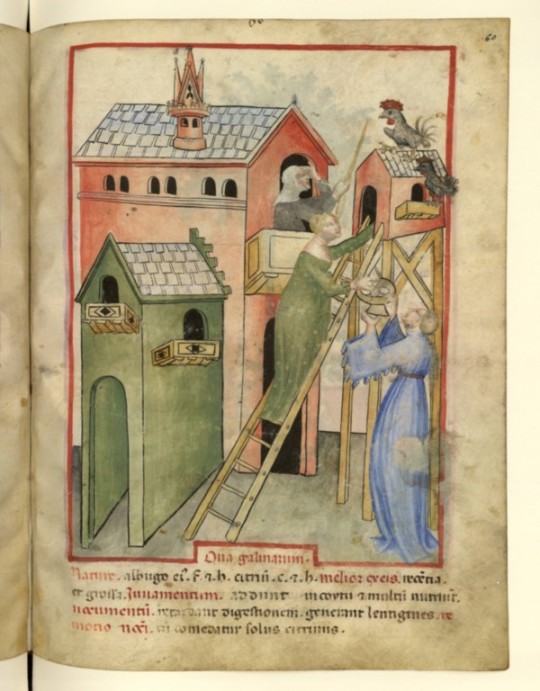 60
Oua galinarum.
Nature. albugo eſ. f. & h. citrin. c. & h. melior ex eis. recentia.
et groſſa. Iuuamentum. addunt in coytu & multum nutriunt.
nocumentum. retardant digeſtionem. generant lentigines. re
motio noci. cum comedatur ſolus citrinus.